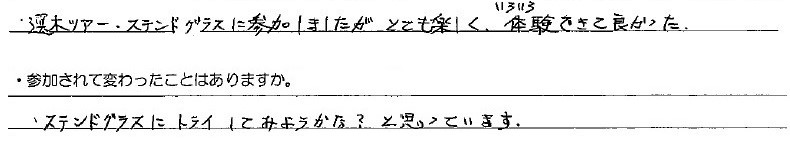 ・選木ツアー・ステンドグラスに参加しましたがとても楽しく、いろいろ体験できて良かった.
・参加されて変わったことはありますか。
・ステンドグラスにトライしてみようかな?と思っています.